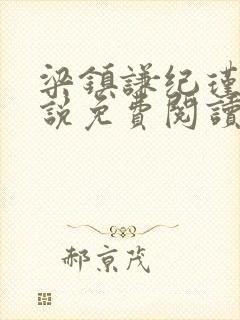 梁鎮謙纪瑾
說免費閱讀
郝京茂